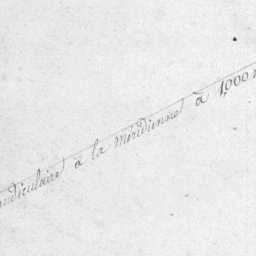 ndiculaire à la méridienne à 1,000